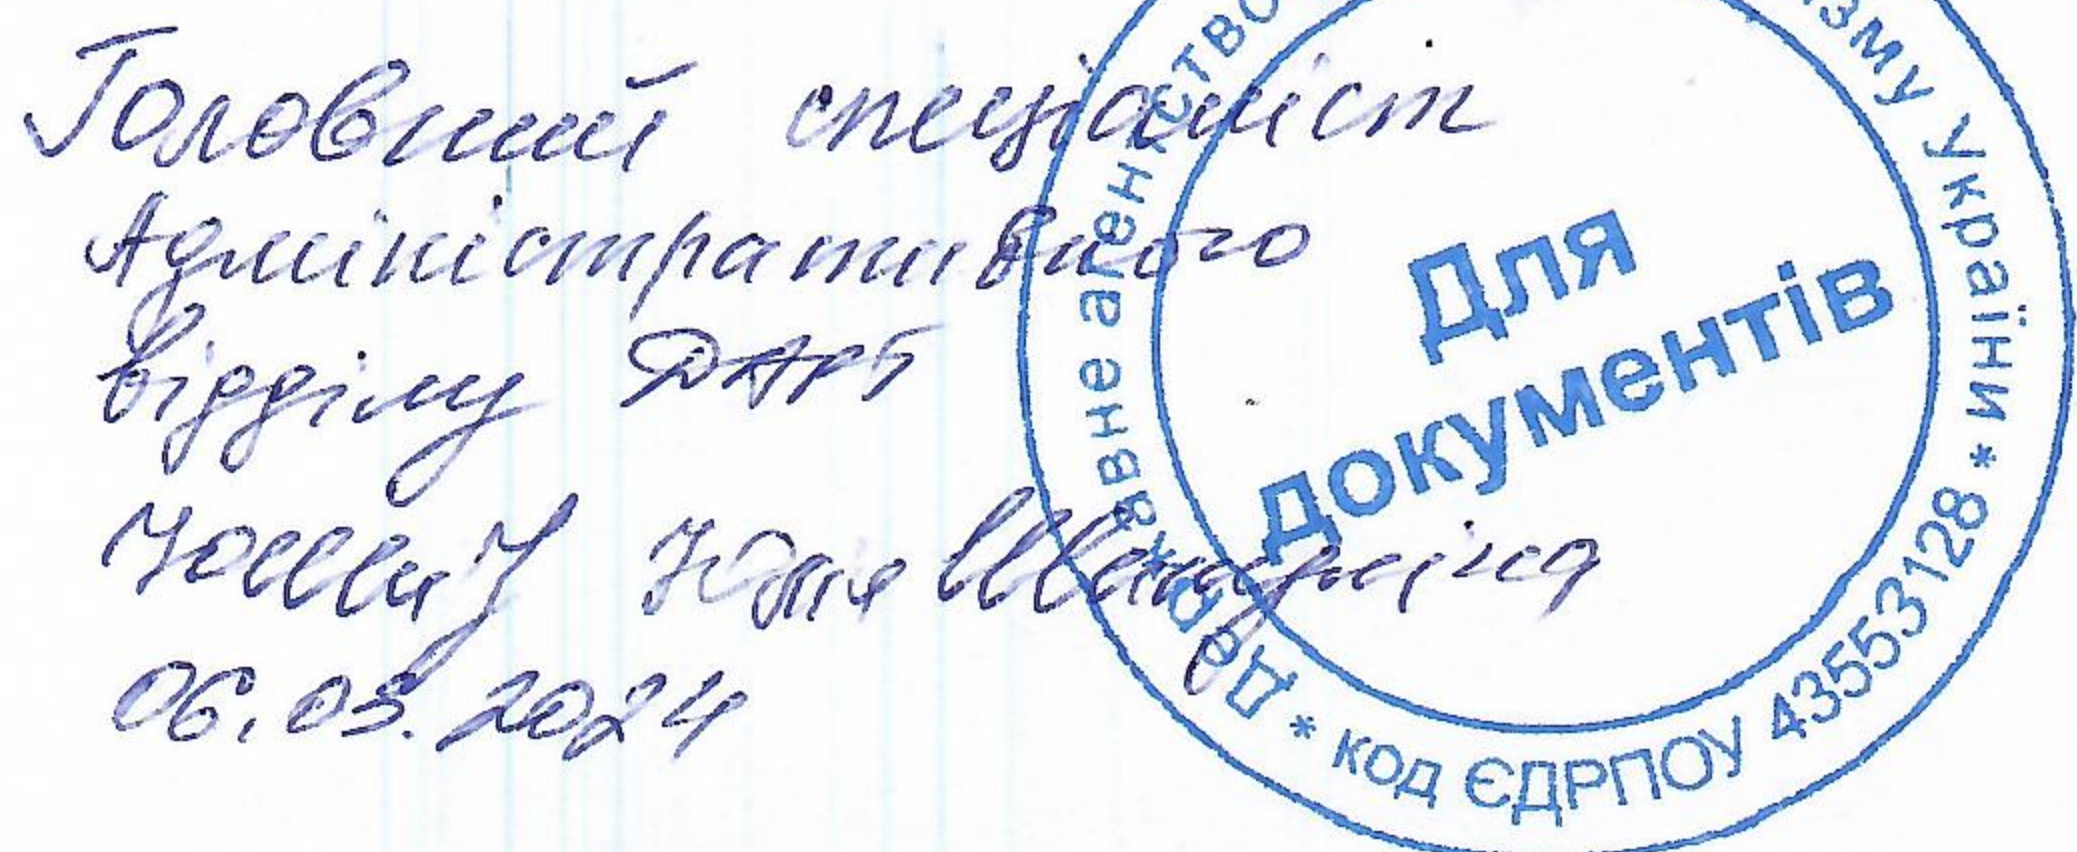 Головний спеціаліст
Адміністративного
відділу ДАРТ
Юлія Шандріна
06.03.2024
Державне агентство
зму України *
* код ЄДРПОУ 43553128 *
Для
документів